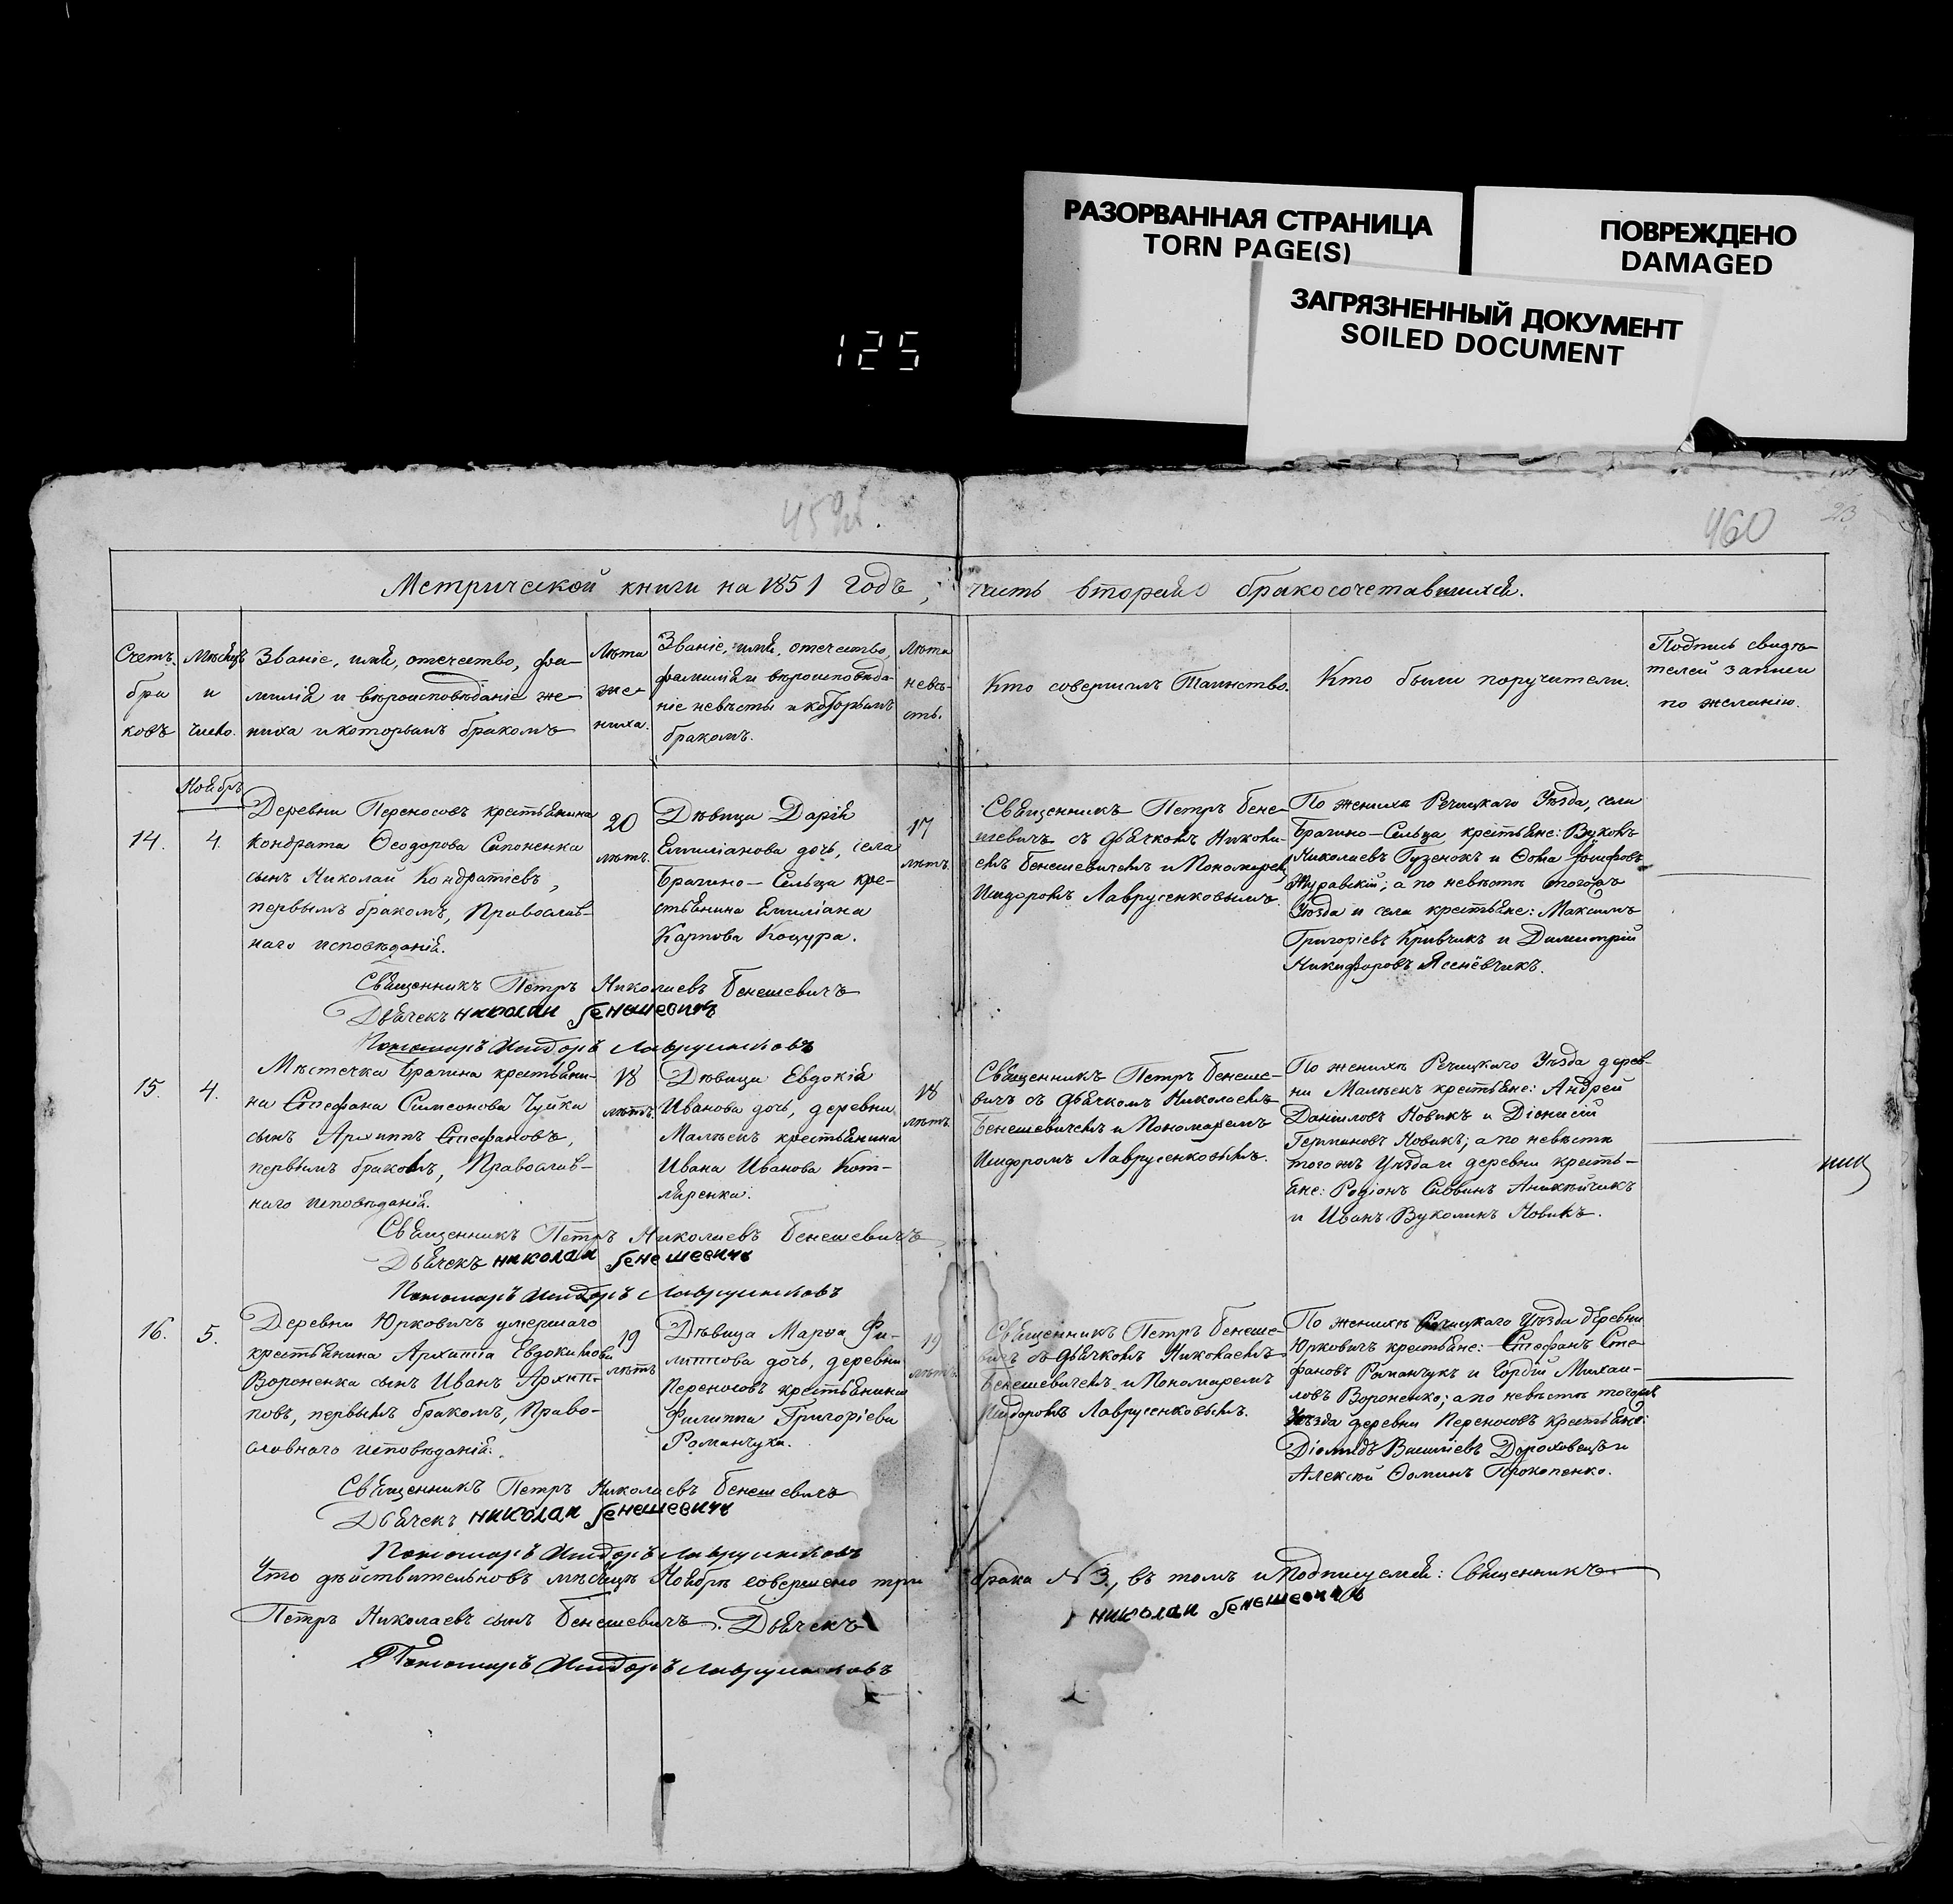 РАЗОРВАННАЯ СТРАНИЦА
TORN PAGE(S)
ПОВРЕЖДЕНО
DAMAGED
ЗАГРЯЗНЕННЫЙ ДОКУМЕНТ
SOILED DOCUMENT
125
460
23
Метрической книги на 1851 годъ, часть вторая о бракосочетавшихся.
Счетъ
бра
ковъ
Мѣсяцъ
и
число.
Званіе, имя, отечество, фа-
милія и вѣроисповѣданіе же-
ниха и которымъ бракомъ
Лѣта
же-
ниха.
Званіе, имя, отечество,
фамилія и вѣроисповѣда-
ніе невѣсты и которымъ
бракомъ.
Лѣта
невѣ-
сты.
Кто совершалъ Таинство.
Кто были поручители.
Подпись свидѣ-
телей записи
по желанію.
Ноябрь
14.
4.
Деревни Переносовъ крестьянина
Кондрата Ѳеодорова Сапоненка
сынъ Николай Кондратіевъ,
первымъ бракомъ, Православ-
наго исповѣданія.
20
лѣтъ.
Дѣвица Дарія
Емиліанова дочь, села
Брагино-Сельца кре-
стьянина Емиліана
Карпова Коцура.
17
лѣтъ.
Священникъ Петръ Бене-
шевичъ съ дьячкомъ Никола-
емъ Бенешевичемъ и Пономаремъ
Исидоромъ Лаврусенковымъ.
По женихѣ Речицкаго Уѣзда, села
Брагино-Сельца крестьяне: Вуколъ
Николаевъ Гузенокъ и Ѳома Іосифовъ
Журавскій; а по невѣстѣ тогожъ
Уѣзда и села крестьяне: Максимъ
Григоріевъ Кривчикъ и Димитрій
Никифоровъ Ясенёвчикъ.
Священникъ Петръ Николаевъ Бенешевичъ
Дьячекъ николаи бенешевичъ
Пономаръ Исидоръ Лаврусенковъ
15.
4.
Мѣстечка Брагина крестьяни-
на Стефана Симеонова Чуйка
сынъ Архиппъ Стефановъ,
первымъ бракомъ, Православ-
наго исповѣданія.
18
лѣтъ.
Дѣвица Евдокія
Иванова дочь, деревни
Малѣекъ крестьянина
Ивана Иванова Кот-
ляренка.
18
лѣтъ.
Священникъ Петръ Бенеше-
вичъ съ дьячкомъ Николаемъ
Бенешевичемъ и Пономаремъ
Исидоромъ Лаврусенковымъ.
По женихѣ Речицкаго Уѣзда дерев-
ни Малѣекъ крестьяне: Андрей
Даніиловъ Новикъ и Діонисій
Германовъ Новикъ; а по невѣстѣ
тогожъ Уѣзда и деревни кресть-
яне: Родіонъ Саввинъ Аникѣйчикъ
и Иванъ Вуколинъ Новикъ.
Священникъ Петръ Николаевъ Бенешевичъ
Дьячекъ николаи бенешевичъ
Пономаръ Исидоръ Лаврусенковъ
16.
5.
Деревни Юрковичъ умершаго
крестьянина Архиппа Евдокимова
Вороненка сынъ Иванъ Архип-
повъ, первымъ бракомъ, Право-
славнаго исповѣданія.
19
лѣтъ
Дѣвица Марѳа Фи-
липпова дочь, деревни
Переносовъ крестьянина
Филиппа Григоріева
Романчука.
19
лѣтъ.
Священникъ Петръ Бенеше-
вичъ съ дьячкомъ Николаемъ
Бенешевичемъ и Пономаремъ
Исидоромъ Лаврусенковымъ.
По женихѣ Речицкаго Уѣзда деревни
Юрковичъ крестьяне: Стефанъ Сте-
фановъ Романчукъ и Гордій Михаи-
ловъ Вороненко; а по невѣстѣ тогожъ
Уѣзда деревни Переносовъ крестьяне:
Діомидъ Василіевъ Дороховецъ и
Алексѣй Ѳоминъ Прокопенко.
Священникъ Петръ Николаевъ Бенешевичъ
Дьячекъ николаи бенешевичъ
Пономаръ Исидоръ Лаврусенковъ
Что дѣйствительно въ мѣсяцѣ Ноябрѣ совершено три брака №3., въ томъ и подписуемся: Священникъ
Петръ Николаевъ сынъ Бенешевичъ. Дьячекъ николаи бенешевичъ
Пономаръ Исидоръ Лаврусенковъ